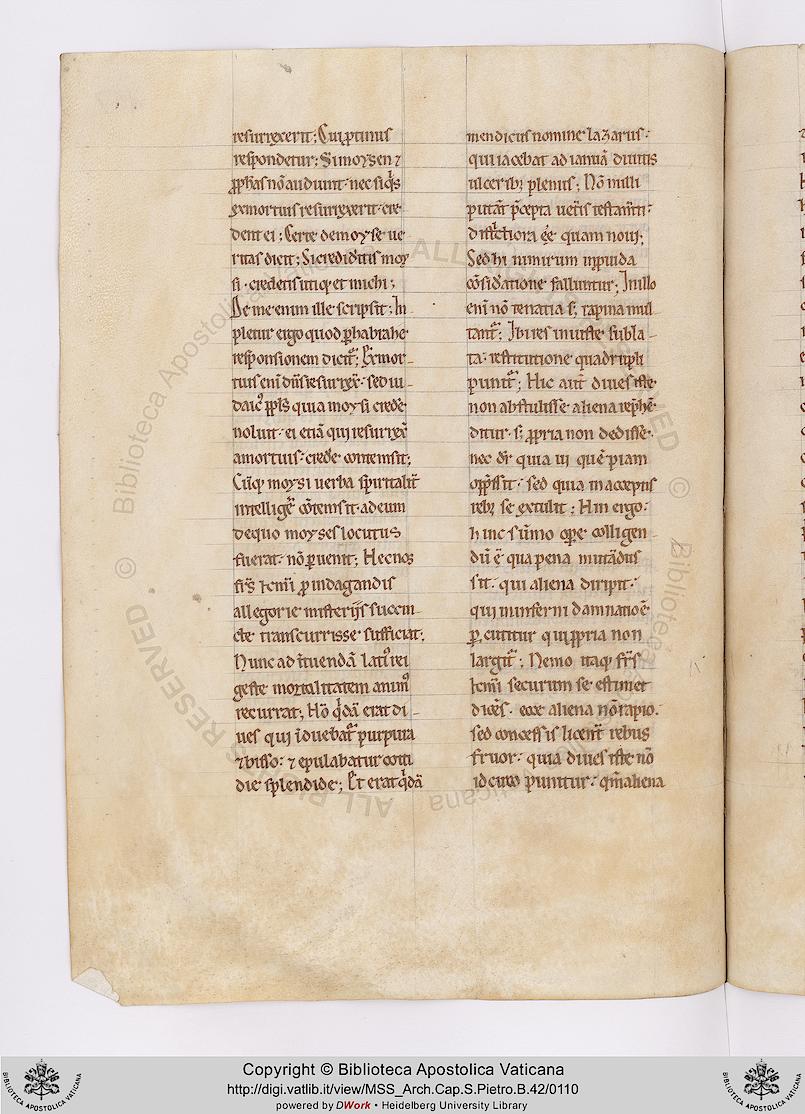 resurrexerit; Cui ꝓtinus
respondetur; Si moysen ⁊
ꝓph̅as nō audiunt· nec siq̇s
ex mortuis resurrexerit cre-
dent ei; Certe de moyse ve
ritas dicit; Si crederitis moy
si· crederitis utiq; et michi;
De me enim ille scripsit; In
pletur ergo quod ꝑ habrahe
responsionem dicit᷑; Ex mor-
tuis eni dn̅s resurrex̅· sed iu-
daic᷒ ppl̅s quia moysi crede̅
noluit· ei etiā qui resurrex̅
a mortuis· crede̅ contemsit;
Cūq; moysi uerba spiritalit̅
intellige̅ cōtemsit· ad eum
de quo moyses locutus
fuerat· nō ꝑuenit; Hec nos
fr̅s kc̅mi ꝓ indagandis
allegorie misterijs succin-
cte transcurrisse sufficiat;
Nunc ad ītuendā lati᷒ rei
geste moralitatem anim᷒
recurrat; Hō q̇dā erat di-
ues qui īduebat᷑ purpura
⁊ bisso· ⁊ epulabatur coti
die splendide; Et erat q̇dā
mendicus nomine lazarus·
qui iacebat ad ianuā diuitis
ulcerib; plenus; Nōnulli
putāt p̄cepta uet̅is testam̅ti·
districtiora e̅e quam noui;
Sed hi nimirum inprouida
cōsid̅atione falluntur; In illo
eni̅ nō tenatia s; rapina mul
tant᷑; Ibi res iniuste subla-
ta· restitutione quadrupli
punit᷑; Hic aut̅ diues iste
non abstulisse aliena rep̅hē-
ditur· s; ꝓpria non dedisse·
nec dr̅ quia ui quēpiam
opp̅ssit· sed quia in acceptis
reb; se extulit; Hin ergo·
hinc sūmo ope̅ colligen-
dū ē qua pena multādus
sit· qui aliena diripit·
qui inferni damnatiōe
ꝑcutitur qui ꝓpria non
largit᷑; Nemo itaq; fr̅s
kc̅mi securum se estimet
dicēs· ecce aliena nō rapio·
sed concessis licent̅ rebus
fruor· quia diues iste nō
idcirco punitur· qm̅ aliena
Copyright © Biblioteca Apostolica Vaticana
http://digi.vatlib.it/view/MSS_Arch.Cap.S.Pietro.B.42/0110
powered by DWork • Heidelberg University Library